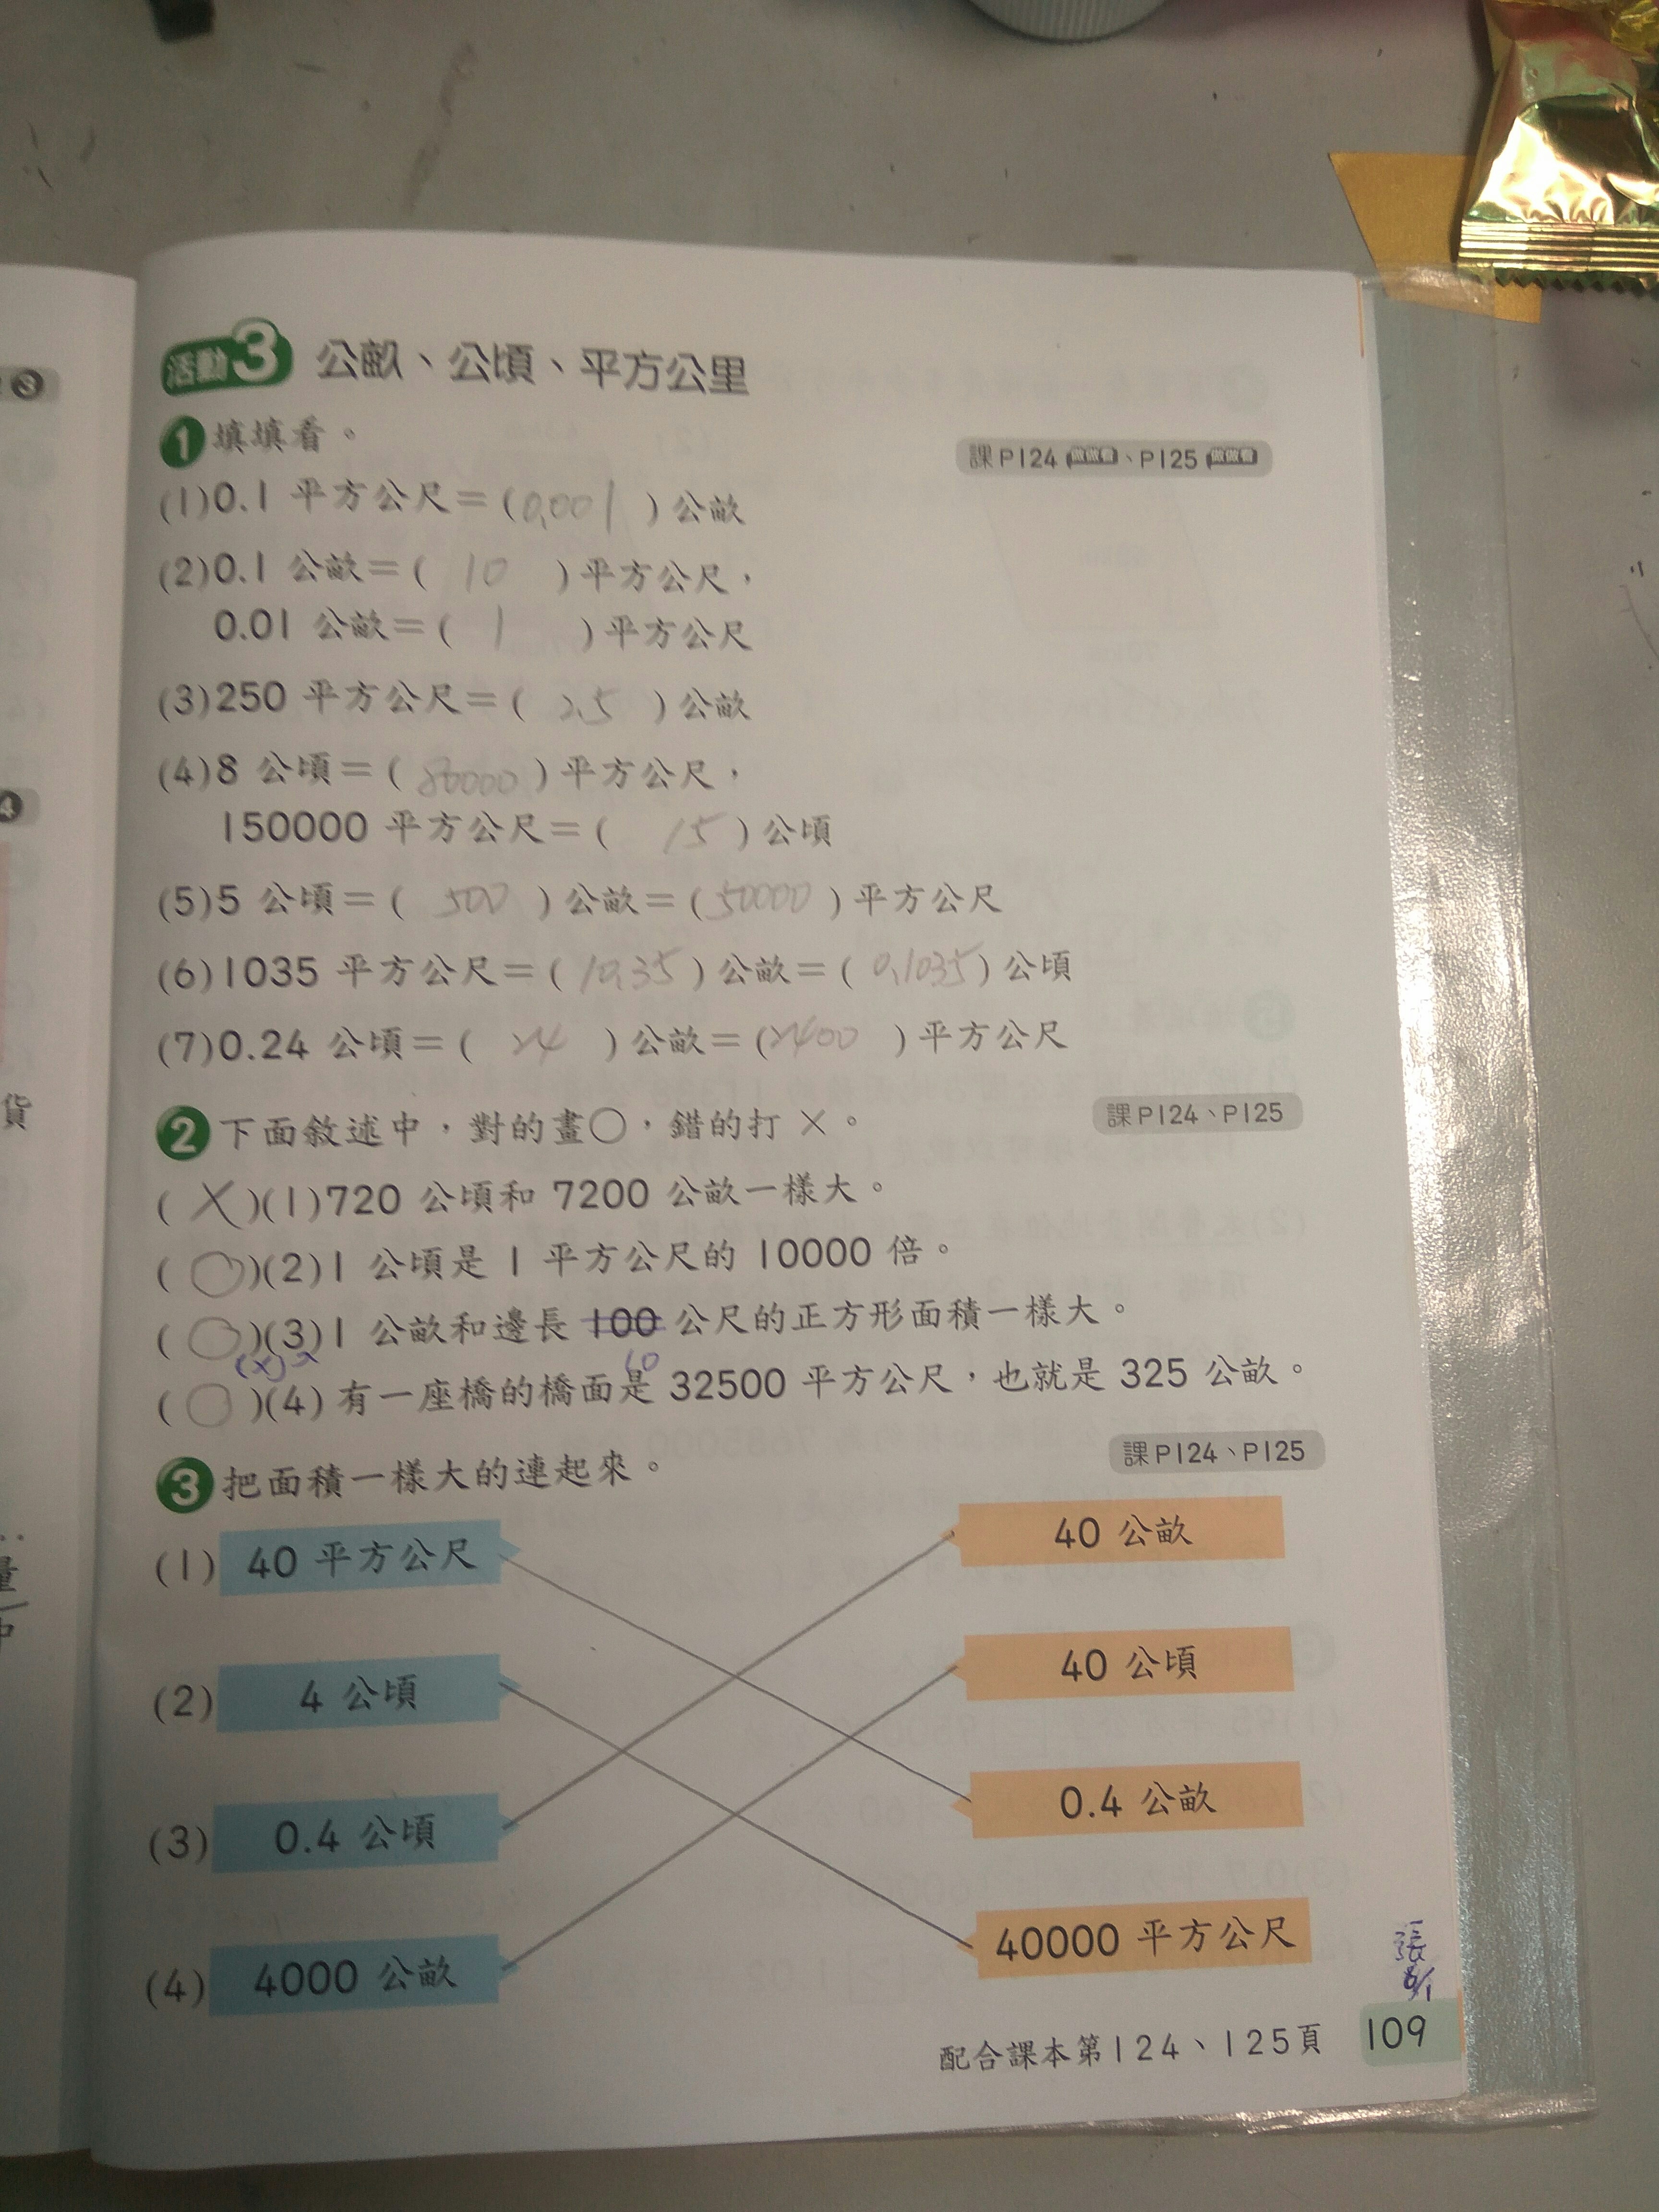 3
4
貨
量
中
活動3 公畝、公頃、平方公里
1 填填看。
課P124 做做看、P125 做做看
(1)0.1 平方公尺=(0.001)公畝
(2)0.1 公畝=( 10 )平方公尺,
0.01 公畝=( 1 )平方公尺
(3)250 平方公尺=( 2.5 )公畝
(4)8 公頃=( 80000 )平方公尺,
150000 平方公尺=( 15 )公頃
(5)5 公頃=( 500 )公畝=(50000)平方公尺
(6)1035 平方公尺=(10.35)公畝=(0.1035)公頃
(7)0.24 公頃=( 24 )公畝=(2400)平方公尺
2 下面敘述中,對的畫○,錯的打 ×。
課P124、P125
( × )(1)720 公頃和 7200 公畝一樣大。
( ○ )(2)1 公頃是 1 平方公尺的 10000 倍。
( ○ )(3)1 公畝和邊長 100 公尺的正方形面積一樣大。
(×) 10
( ○ )(4)有一座橋的橋面是 32500 平方公尺,也就是 325 公畝。
3 把面積一樣大的連起來。
課P124、P125
(1) 40 平方公尺
40 公畝
(2) 4 公頃
40 公頃
(3) 0.4 公頃
0.4 公畝
(4) 4000 公畝
40000 平方公尺
張
配合課本第124、125頁 109